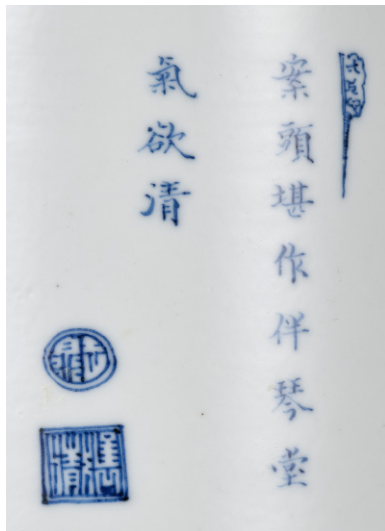 案頭堪作伴琴堂
氣欲清